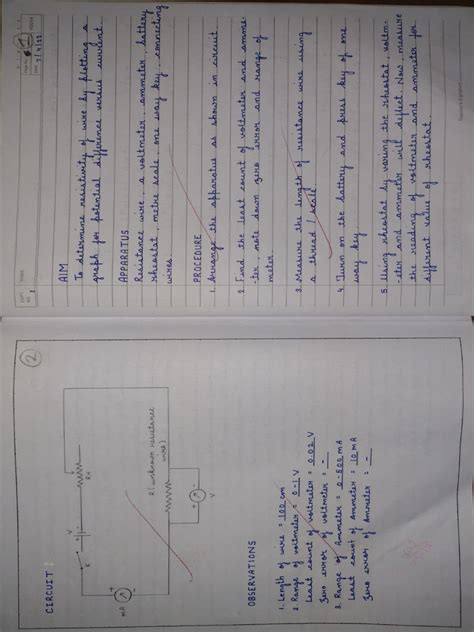 EXPT. NO. 1
Date 7/4/22
AIM
To determine resistivity of wire by plotting a
graph for potential difference versus current.
APPARATUS
Resistance wire, a voltmeter, ammeter, battery
rheostat, metre scale, one way key, connecting
wires
PROCEDURE
1. Arrange the apparatus as shown in circuit.
2. Find the least count of voltmeter and amme-
-ter, note down zero error and range of
meter
3. Measure the length of resistance wire using
a thread / scale
4. Turn on the battery and press key of one
way key.
5. Using rheostat by varing the rheostat, voltm-
-eter and ammeter will deflect. Now, measure
the reading of voltmeter and ammeter for
different value of rheostat.
2
CIRCUIT :
K
V
RH
mA
R (unknown resistance
wire)
V
OBSERVATIONS
1. Length of wire = 100 cm
2. Range of voltmeter = 0-1 V
Least count of voltmeter = 0.02 V
Zero error of voltmeter = -
3. Range of Ammeter = 0-500 mA
Least count of Ammeter = 10 mA
Zero error of Ammeter = -